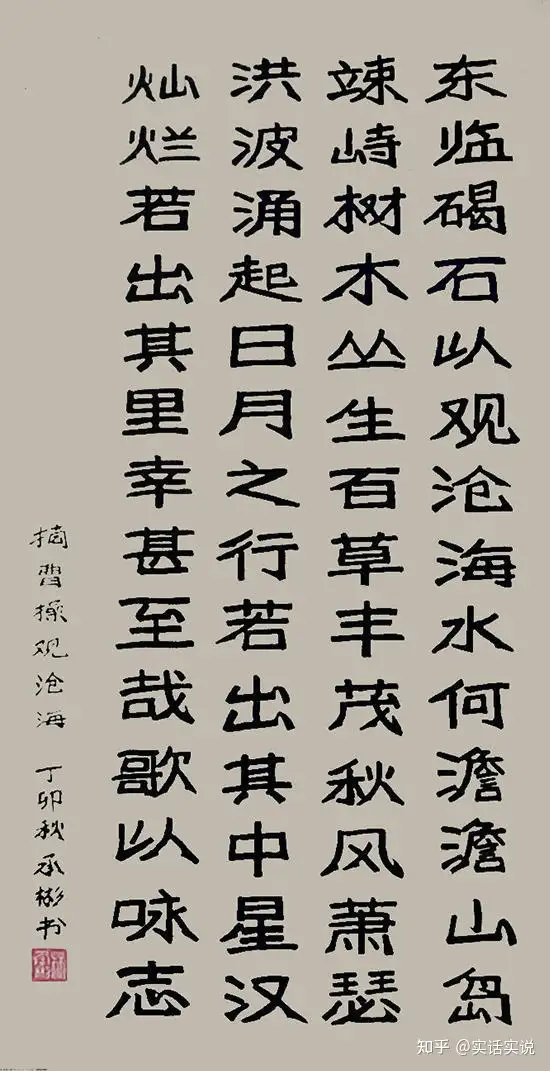 东临碣石以观沧海水何澹澹山岛
竦峙树木丛生百草丰茂秋风萧瑟
洪波涌起日月之行若出其中星汉
灿烂若出其里幸甚至哉歌以咏志
摘曹操观沧海 丁卯秋承彬书
知乎 @实话实说